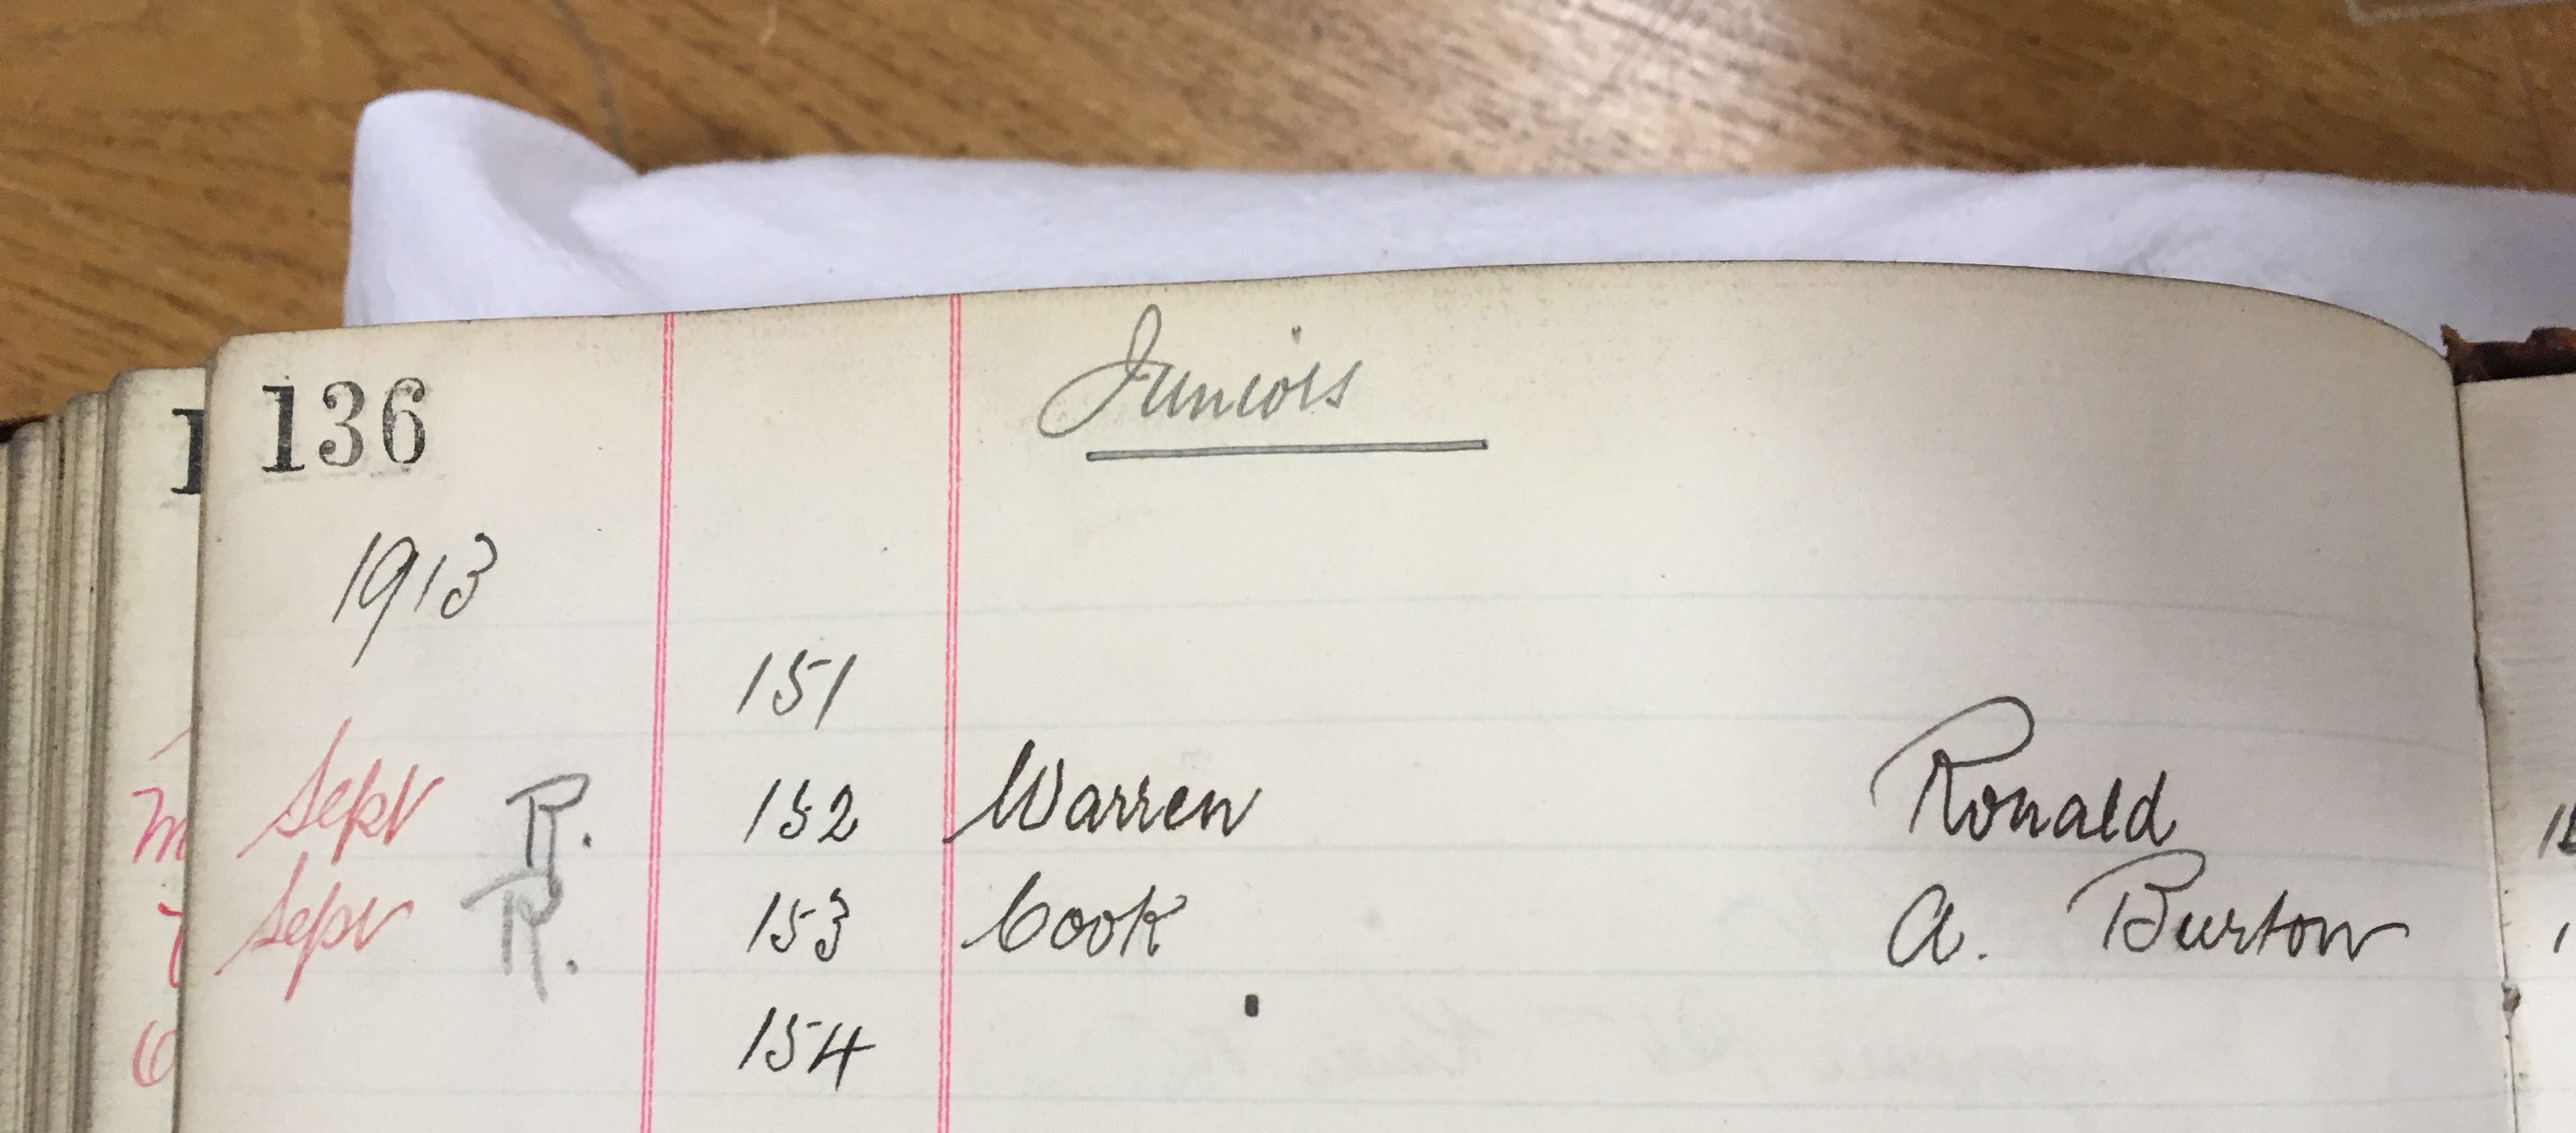 136 Juniors
1913
151
Sept R. 152 Warren Ronald
Sept R. 153 Cook A. Burton
154